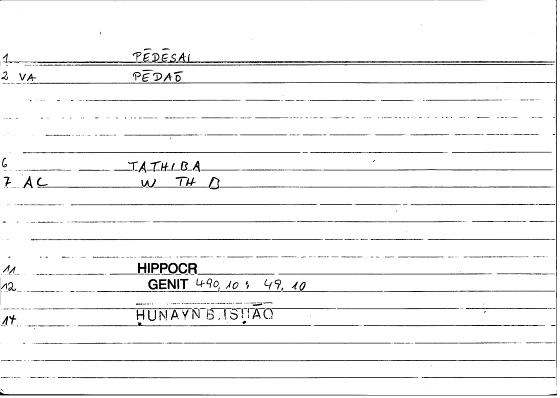 1 PĒDĒSAI
2 VA PĒDAŌ
6 TATHIBA
7 AC W TH B
11 HIPPOCR
12 GENIT 490, 10 : 49, 10
14 ḤUNAYN B. ISḤĀQ